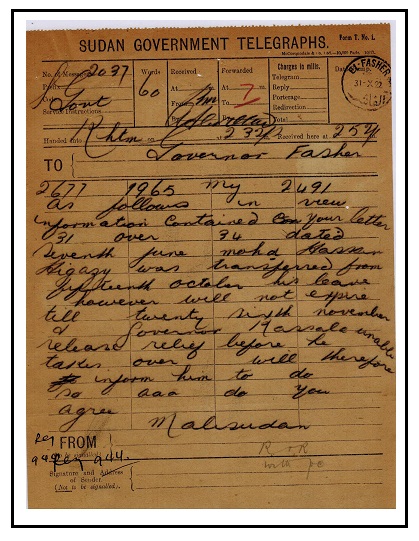 SUDAN GOVERNMENT TELEGRAPHS.
Form T. No. 1.
No. of Message 2037
Words
60
Received
Forwarded
Charges in mills.
At
At
7
m.
Telegram
Reply
Porterage
Redirection
Total
Govt
Service Instructions
From
To
EL-FASHER
31-X-22
Handed into Khtm on at 232 Received here at 252
TO Governor Fasher
2677 1965 My 2491
as follows in view
information contained in your letter
31 over 34 dated
seventh june mohd Hassan
Higazy was transferred from
fifteenth october his leave
however will not expire
till twenty sixth november
& Governor Kassala unable
release relief before he
takes over will therefore
inform him to do
so aaa do you
agree
Malsudan
FROM
Reg 944
Signature and Address
of Sender.
(Not to be signalled.)